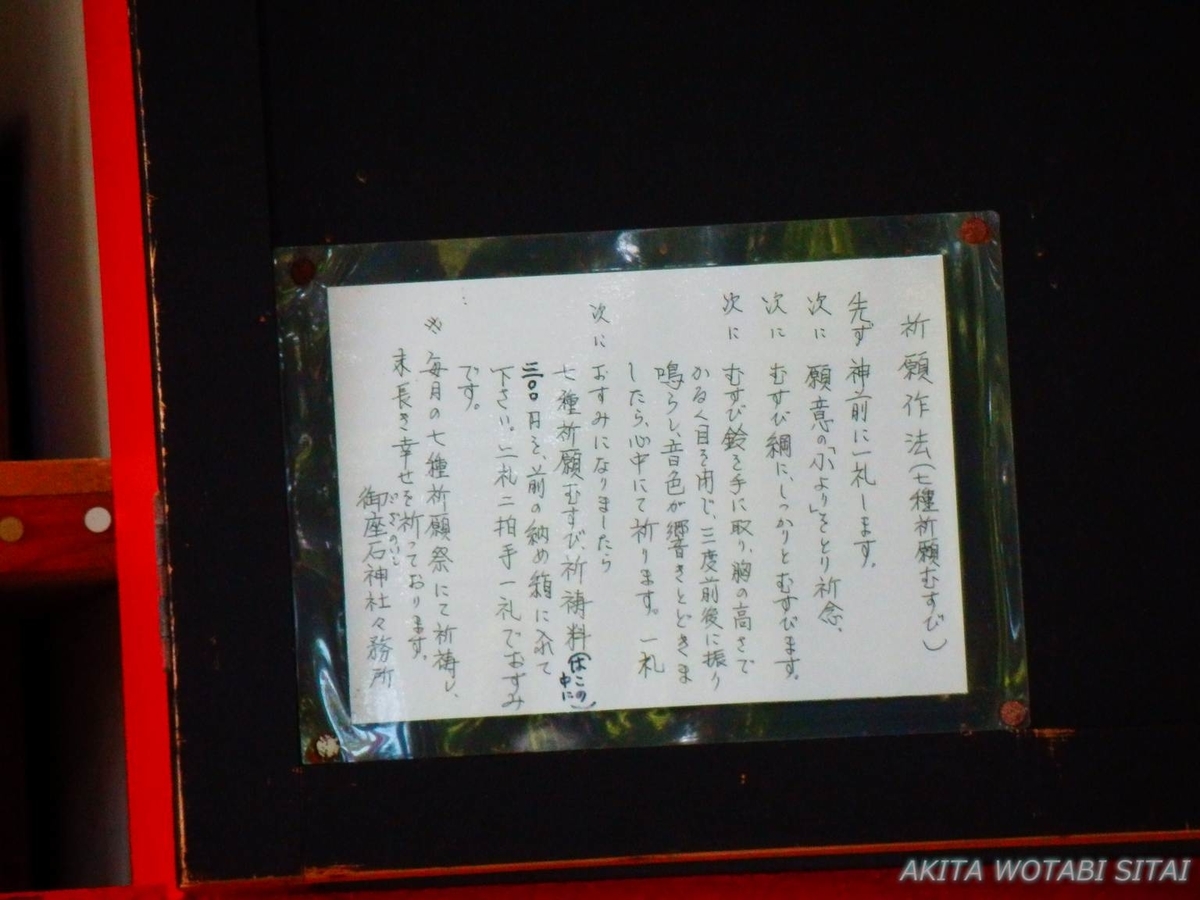 祈願作法(七種祈願むすび)
先ず 神前に一礼します。
次に 願意の「小より」をとり祈念、
次に むすび綱に、しっかりとむすびます。
次に むすび鈴を手に取り、胸の高さで
かるく目を閉じ、三度前後に振り
鳴らし、音色が響きとどきま
したら、心中にて祈ります。一礼
次に おすみになりましたら
七種祈願むすび、祈祷料(はこの中に)
三〇〇円を、前の納め箱に入れて
下さい。二礼二拍手一礼でおすみ
です。
※ 毎月の七種祈願祭にて祈祷し、
末長き幸せを祈っております。
ござのいし
御座石神社々務所
AKITA WOTABI SITAI